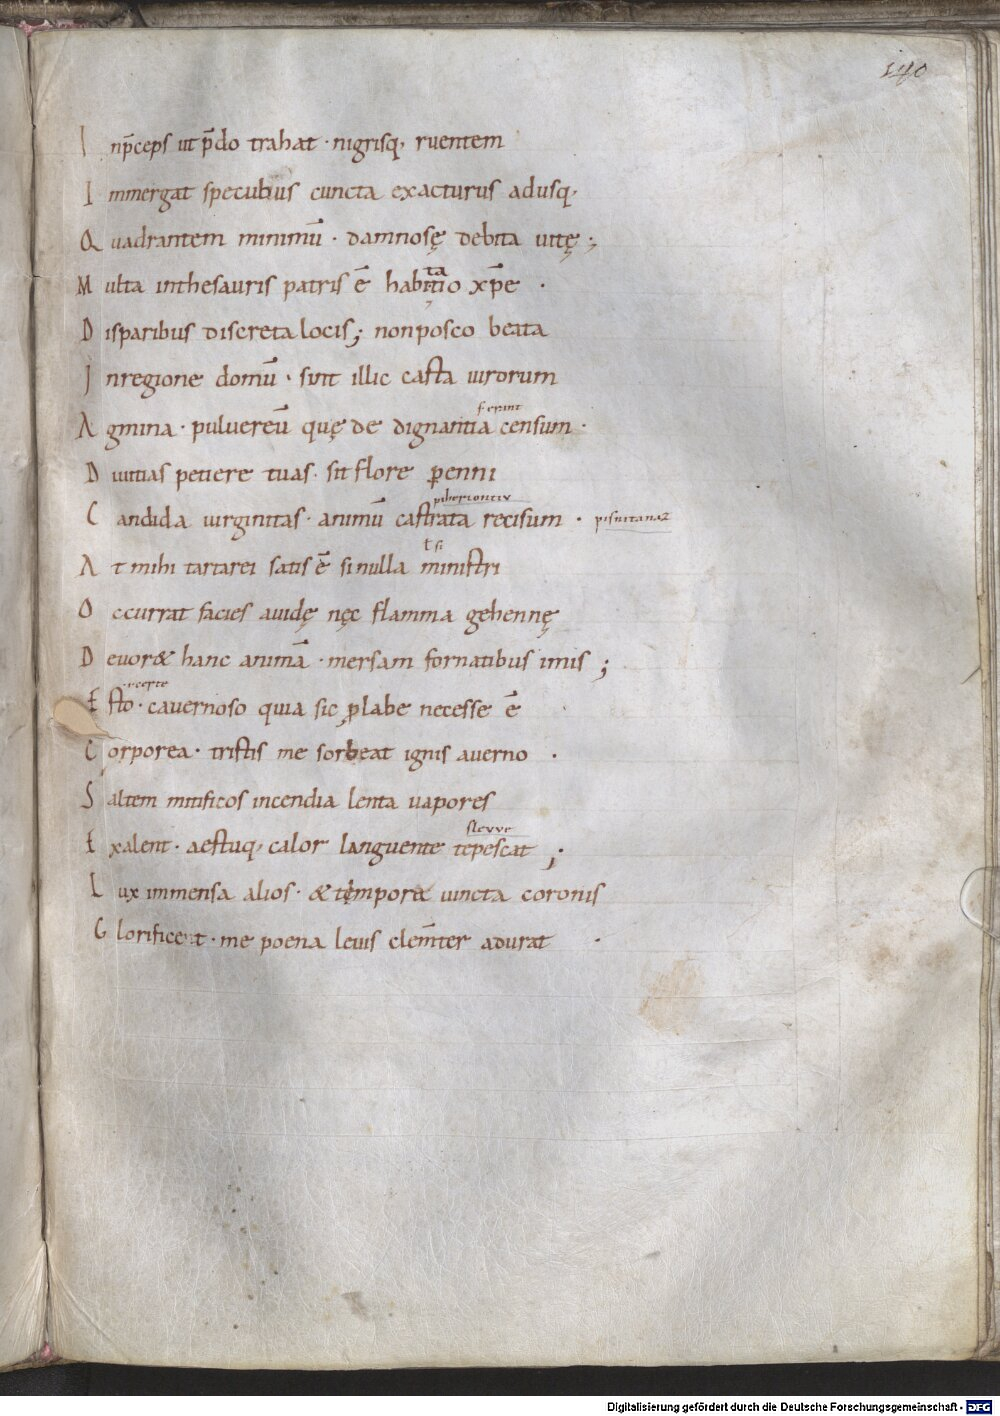 140
I np̄ceps ut p̄do trahat · nigrisq, ruentem
I mmergat specubus cuncta exacturus adusq,
Q uadrantem minimū · damnosę debita uitę ;
M ulta inthesauris patris ē habitatio xp̄e ·
D isparibus discreta locis ; nonposco beata
I nregione domū · sint illic casta uirorum
ferint
A gmina · puluereū quę de dignantia censum ·
D iuitias petiere tuas · sit flore ꝑenni
piheriontiv
C andida uirginitas · animū castrata recisum · pisnitanaz
ł si
A t mihi tartarei satis ē sinulla ministri
O ccurrat facies auidę nęc flamma gehennę
D euor& hanc animā · mersam fornatibus imis ;
E sto · cauernoso quia sic ꝓlabe necesse ē
C orporea · tristis me sorbeat ignis auerno ·
S altem mitificos incendia lenta uapores
slevve
E xalent · aestuq, calor languente tepescat ;
L ux immensa alios · & tempora uincta coronis
G lorificent · me poena leuis clem̄ter adurat ·
Digitalisierung gefördert durch die Deutsche Forschungsgemeinschaft - DFG